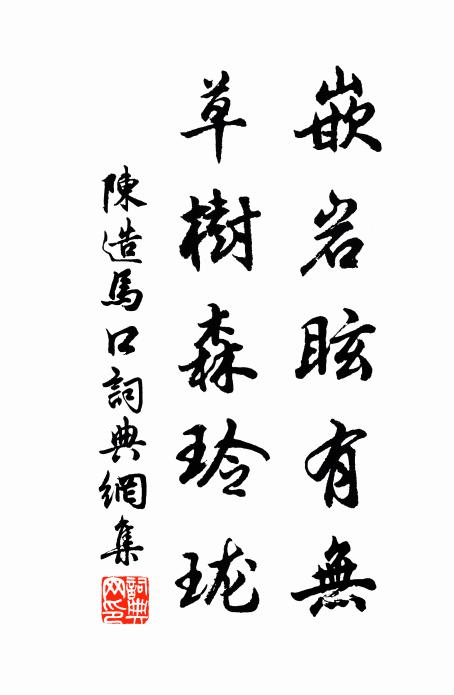 嵌岩眩有無
草樹森玲珑
陳造馬口詞典網集
詞典網印